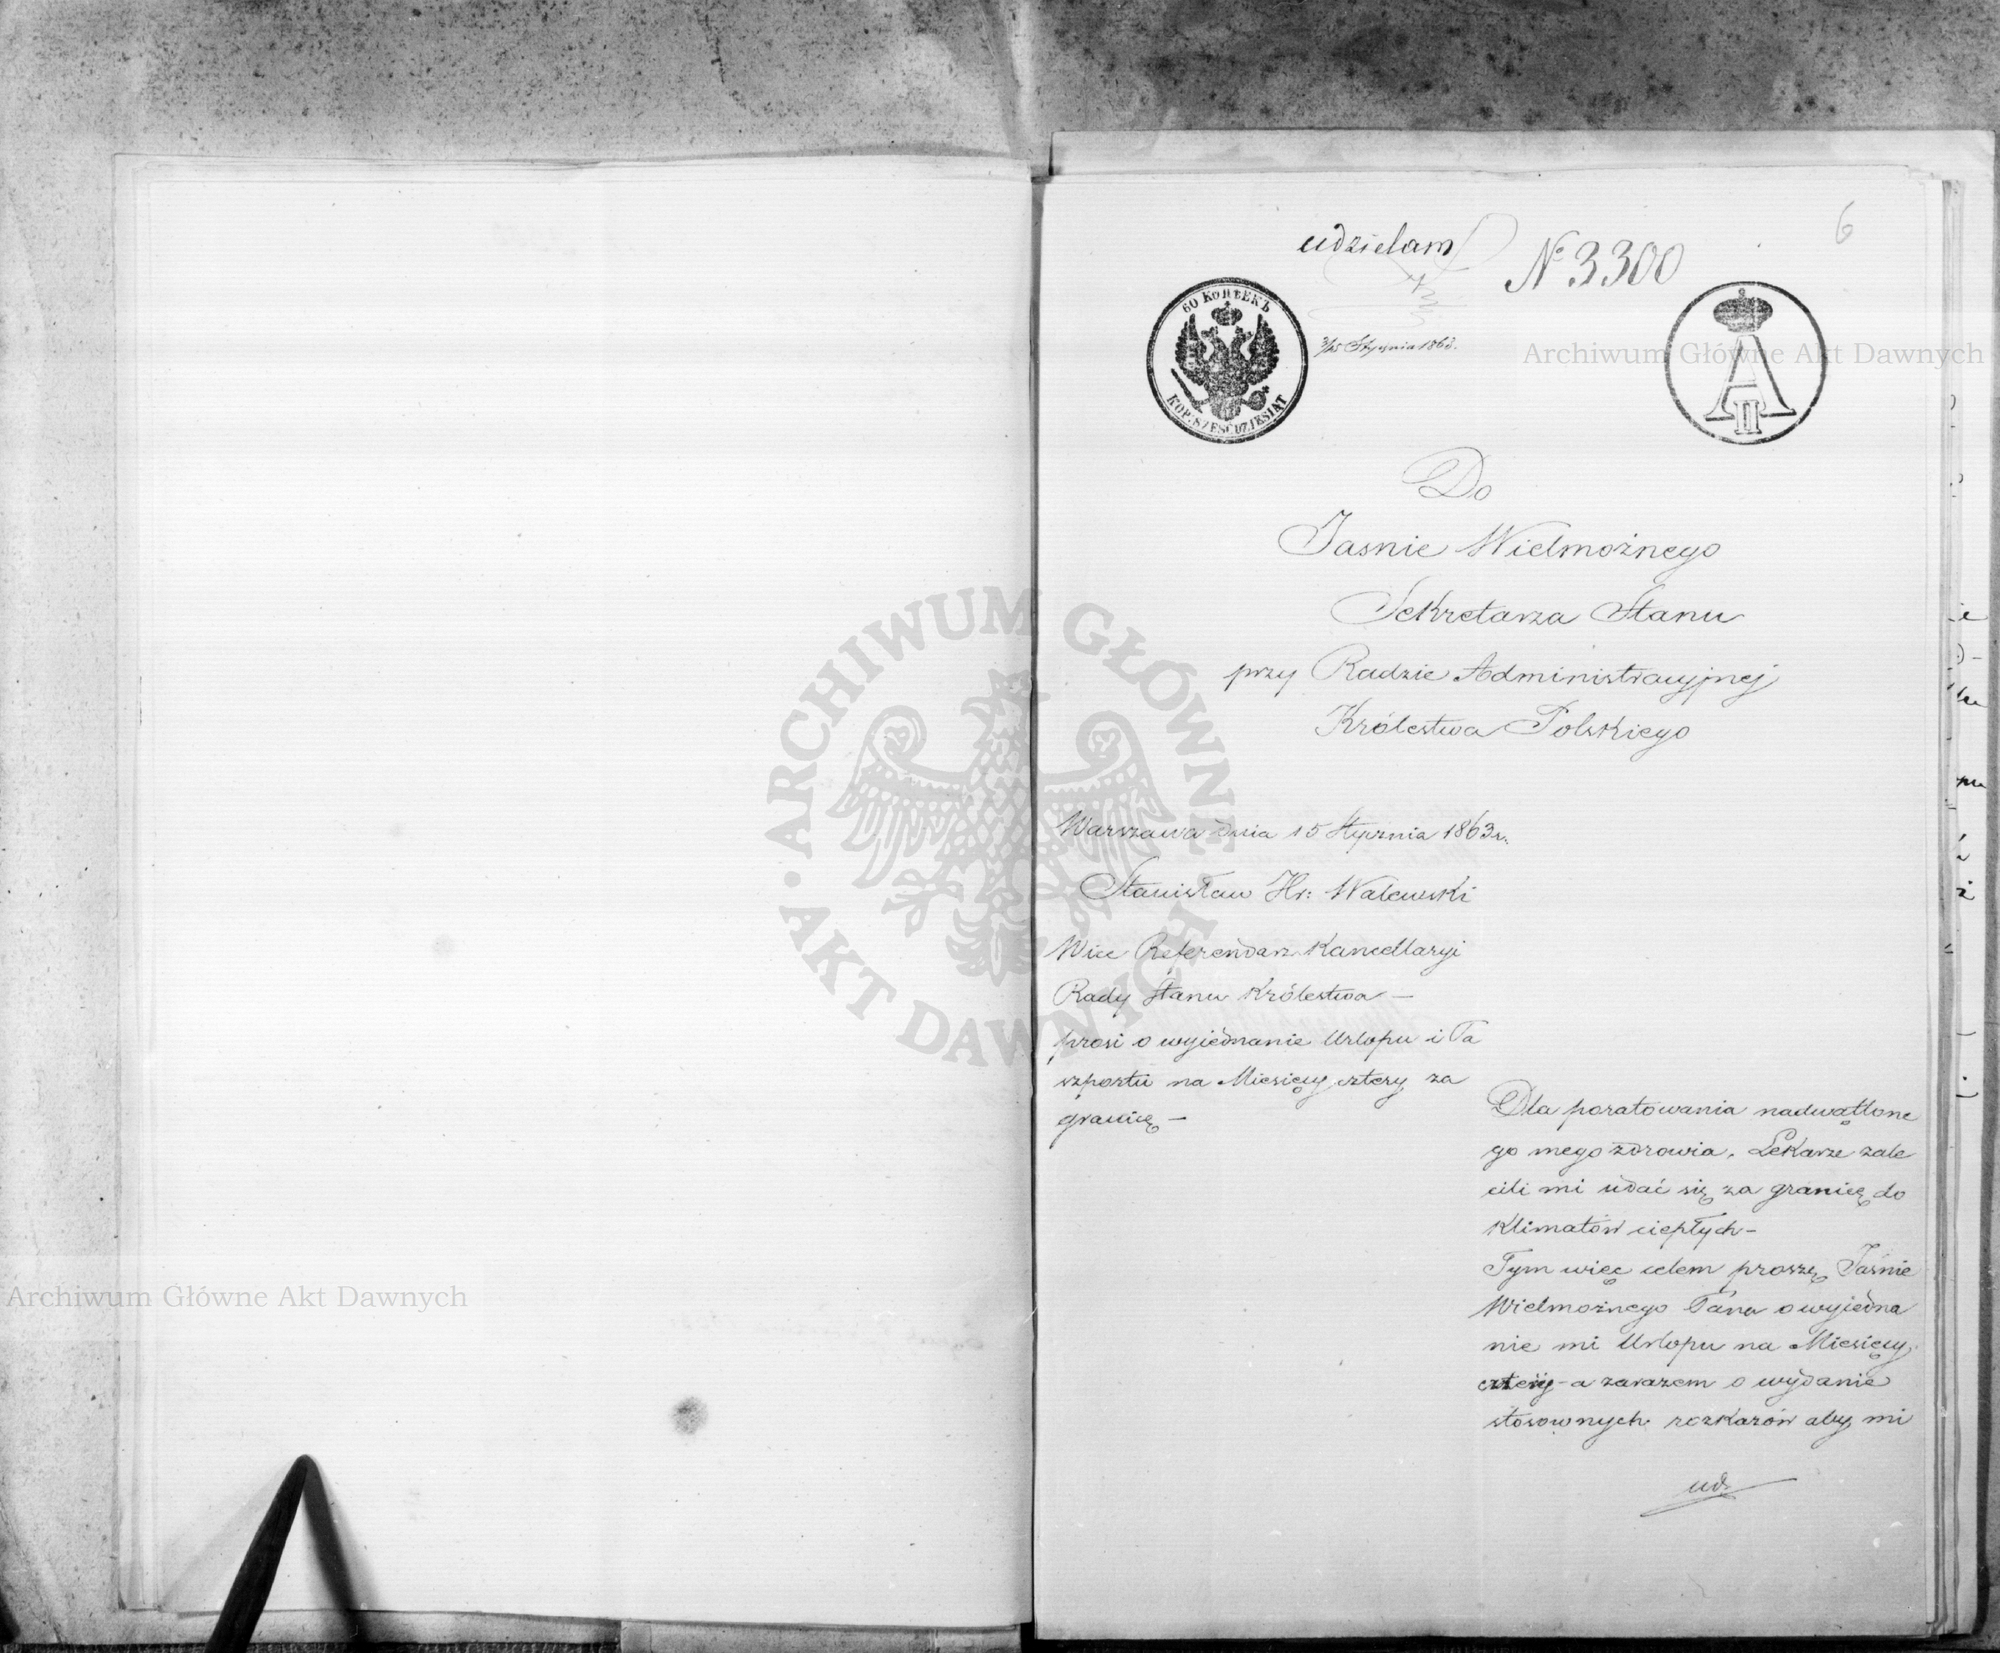 6
udzielam
№ 3300
60 КОПѢЕКЪ
KOP: SZEŚĆDZIESIĄT
3/15 Stycznia 1863.
A II
Do
Jasnie Wielmożnego
Sekretarza Stanu
przy Radzie Administracyjnej
Królestwa Polskiego
Warszawa dnia 15 Stycznia 1863 r.
Stanisław Hr: Walewski
Wice Referendarz Kancellaryi
Rady Stanu Królestwa —
prosi o wyjednanie Urlopu i Pa
szportu na Miesięcy cztery za
granicę —
Dla poratowania nadwątlone
go mego zdrowia, Lekarze zale
cili mi udać się za granicę do
Klimatów ciepłych —
Tym więc celem proszę Jaśnie
Wielmożnego Pana o wyjedna
nie mi Urlopu na Miesięcy
cztery - a zarazem o wydanie
stosownych rozkazów aby mi
Archiwum Główne Akt Dawnych
Archiwum Główne Akt Dawnych
ARCHIWUM GŁÓWNE AKT DAWNYCH